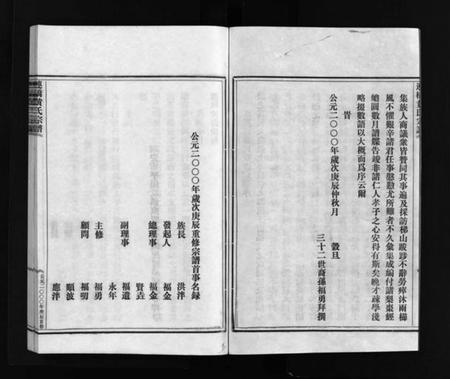 集族人商議衆皆贊同其事遍及採訪梯山跋涉不辭勞瘁沐雨櫛
風不憚艱辛諸君任事慇懃尤所難者不久彙集成編付諸梨棗經
繪圖數月譜牒告竣非諸仁人孝子之心安得有斯矣晚才疎學淺
略援數語以大概而爲序云爾
旹
公元二〇〇〇年歲次庚辰仲秋月 穀旦
三十二世裔孫福勇拜撰
公元二〇〇〇年歲次庚辰重修宗譜首事名錄
族長 洪洋
發起人 福金
總理事 福金
賢垚
副理事 福道
永年
主修 福勇
顧問 福明
順波
應洋